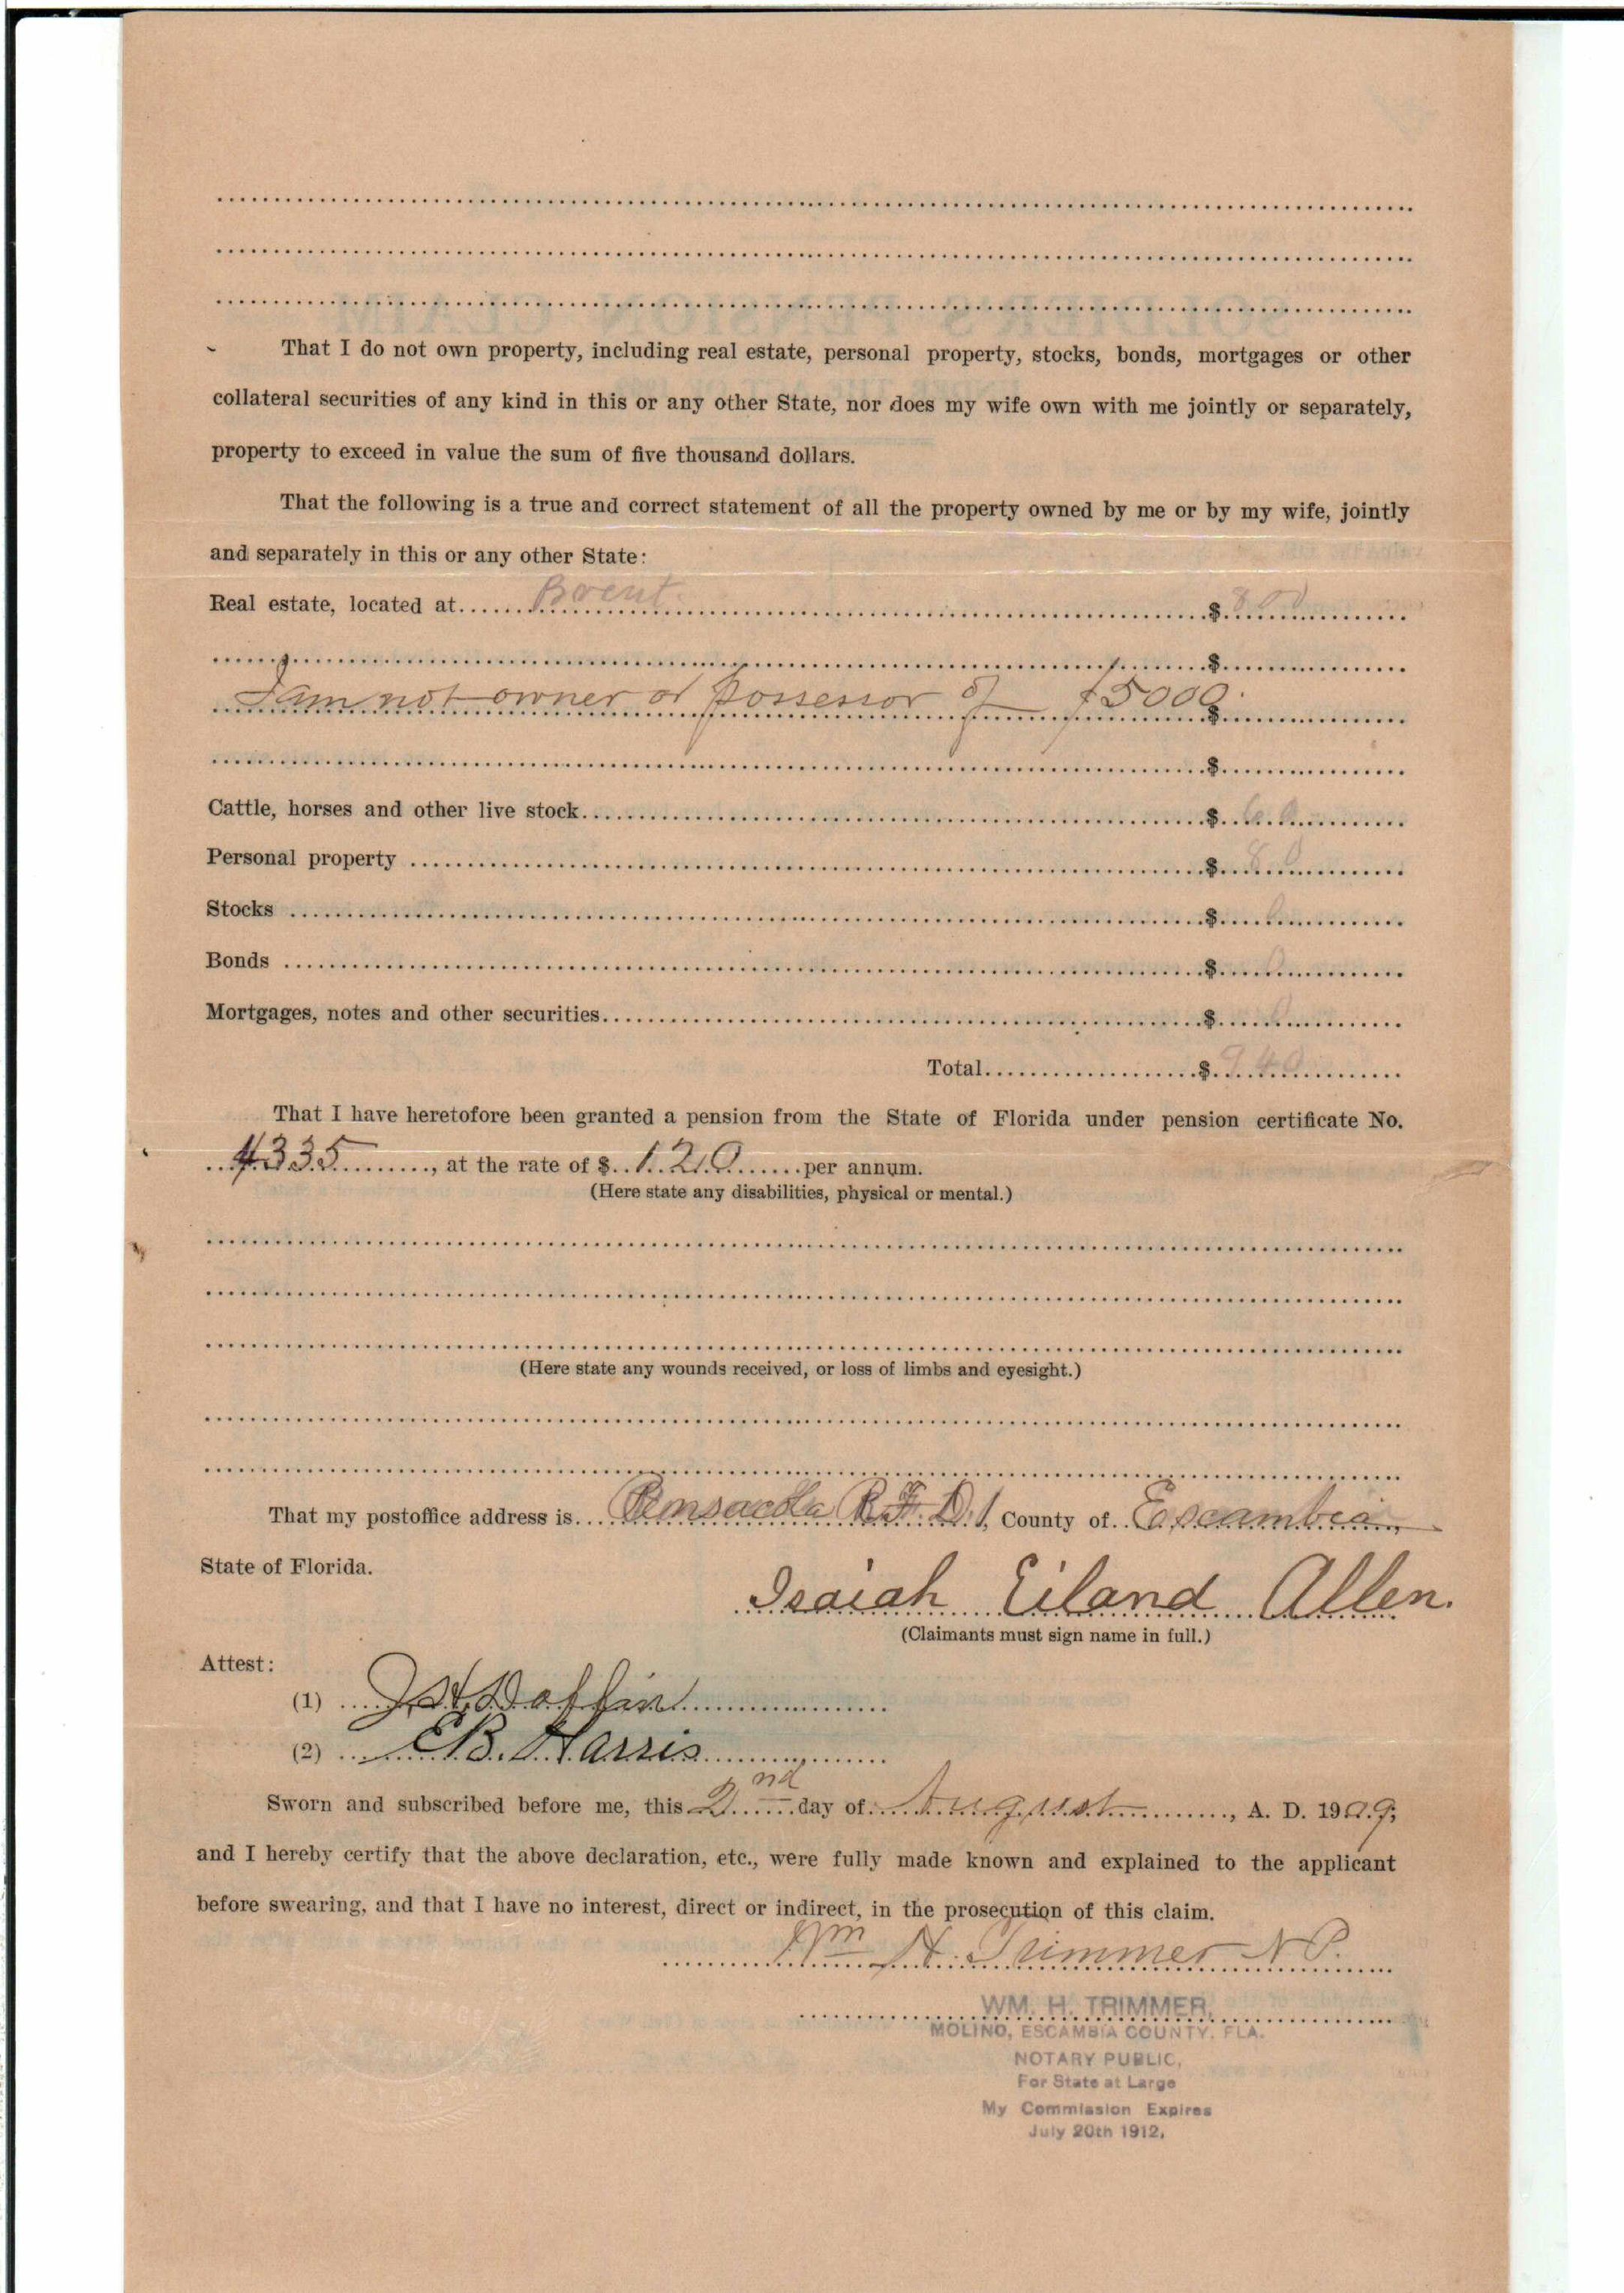 That I do not own property, including real estate, personal property, stocks, bonds, mortgages or other
collateral securities of any kind in this or any other State, nor does my wife own with me jointly or separately,
property to exceed in value the sum of five thousand dollars.
That the following is a true and correct statement of all the property owned by me or by my wife, jointly
and separately in this or any other State:
Real estate, located at Brent $ 800
$
I am not owner or possessor of $5000. $
$
Cattle, horses and other live stock $ 60
Personal property $ 80
Stocks $ 0
Bonds $ 0
Mortgages, notes and other securities $ 0
Total $ 940
That I have heretofore been granted a pension from the State of Florida under pension certificate No.
4335, at the rate of $ 120 per annum.
(Here state any disabilities, physical or mental.)
(Here state any wounds received, or loss of limbs and eyesight.)
That my postoffice address is Pensacola R.F.D.1, County of Escambia,
State of Florida.
Isaiah Eiland Allen.
(Claimants must sign name in full.)
Attest:
(1)
(2) E.B. Harris
Sworn and subscribed before me, this 2nd day of August, A. D. 1909;
and I hereby certify that the above declaration, etc., were fully made known and explained to the applicant
before swearing, and that I have no interest, direct or indirect, in the prosecution of this claim.
Wm H. Trimmer N.P.
WM. H. TRIMMER,
MOLINO, ESCAMBIA COUNTY, FLA.
NOTARY PUBLIC,
For State at Large
My Commission Expires
July 20th 1912,